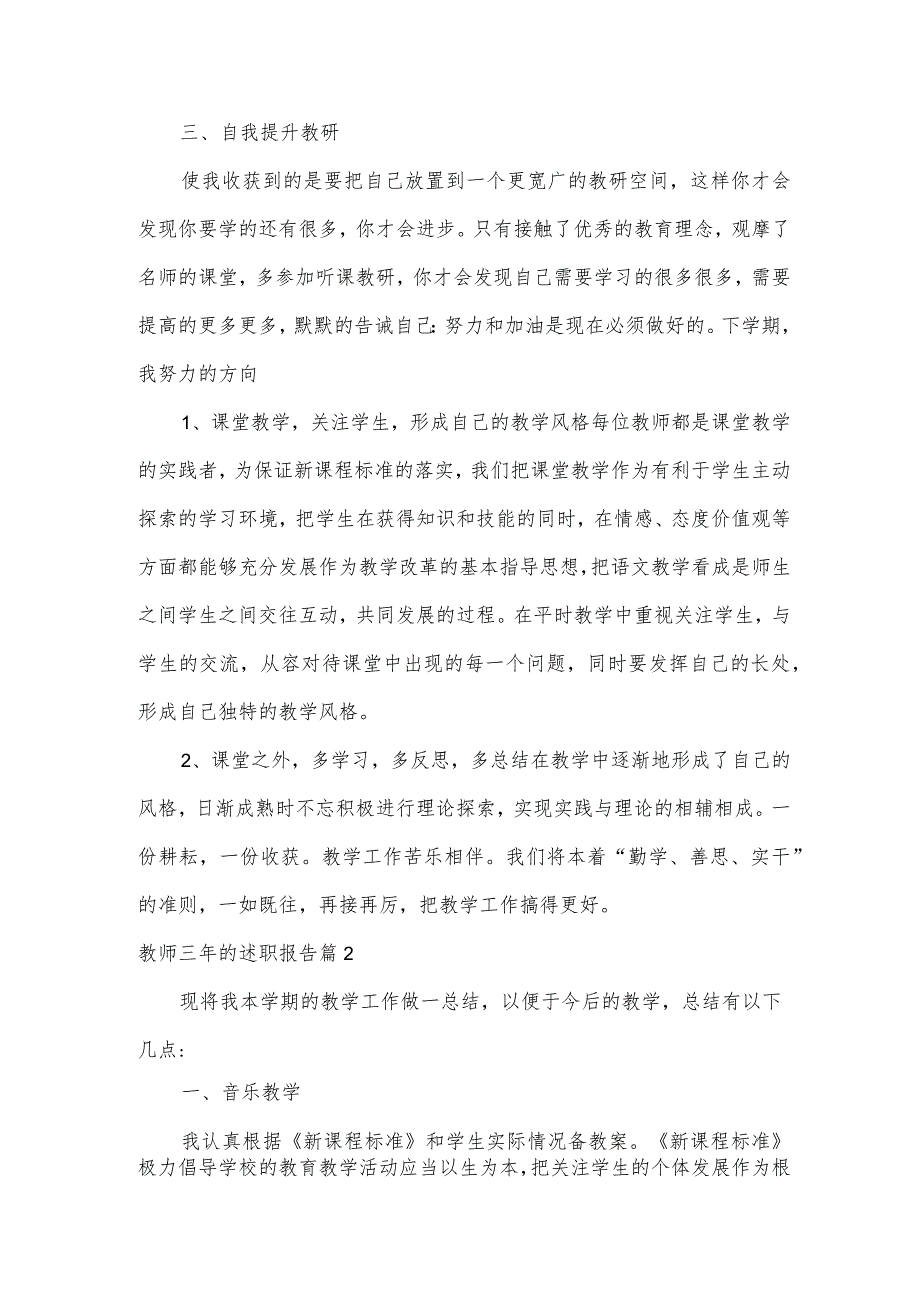 三、自我提升教研
使我收获到的是要把自己放置到一个更宽广的教研空间，这样你才会
发现你要学的还有很多，你才会进步。只有接触了优秀的教育理念，观摩了
名师的课堂，多参加听课教研，你才会发现自己需要学习的很多很多，需要
提高的更多更多，默默的告诫自己：努力和加油是现在必须做好的。下学期，
我努力的方向
1、课堂教学，关注学生，形成自己的教学风格每位教师都是课堂教学
的实践者，为保证新课程标准的落实，我们把课堂教学作为有利于学生主动
探索的学习环境，把学生在获得知识和技能的同时，在情感、态度价值观等
方面都能够充分发展作为教学改革的基本指导思想，把语文教学看成是师生
之间学生之间交往互动，共同发展的过程。在平时教学中重视关注学生，与
学生的交流，从容对待课堂中出现的每一个问题，同时要发挥自己的长处，
形成自己独特的教学风格。
2、课堂之外，多学习，多反思，多总结在教学中逐渐地形成了自己的
风格，日渐成熟时不忘积极进行理论探索，实现实践与理论的相辅相成。一
份耕耘，一份收获。教学工作苦乐相伴。我们将本着“勤学、善思、实干”
的准则，一如既往，再接再厉，把教学工作搞得更好。
教师三年的述职报告篇2
现将我本学期的教学工作做一总结，以便于今后的教学，总结有以下
几点：
一、音乐教学
我认真根据《新课程标准》和学生实际情况备教案。《新课程标准》
极力倡导学校的教育教学活动应当以生为本，把关注学生的个体发展作为根